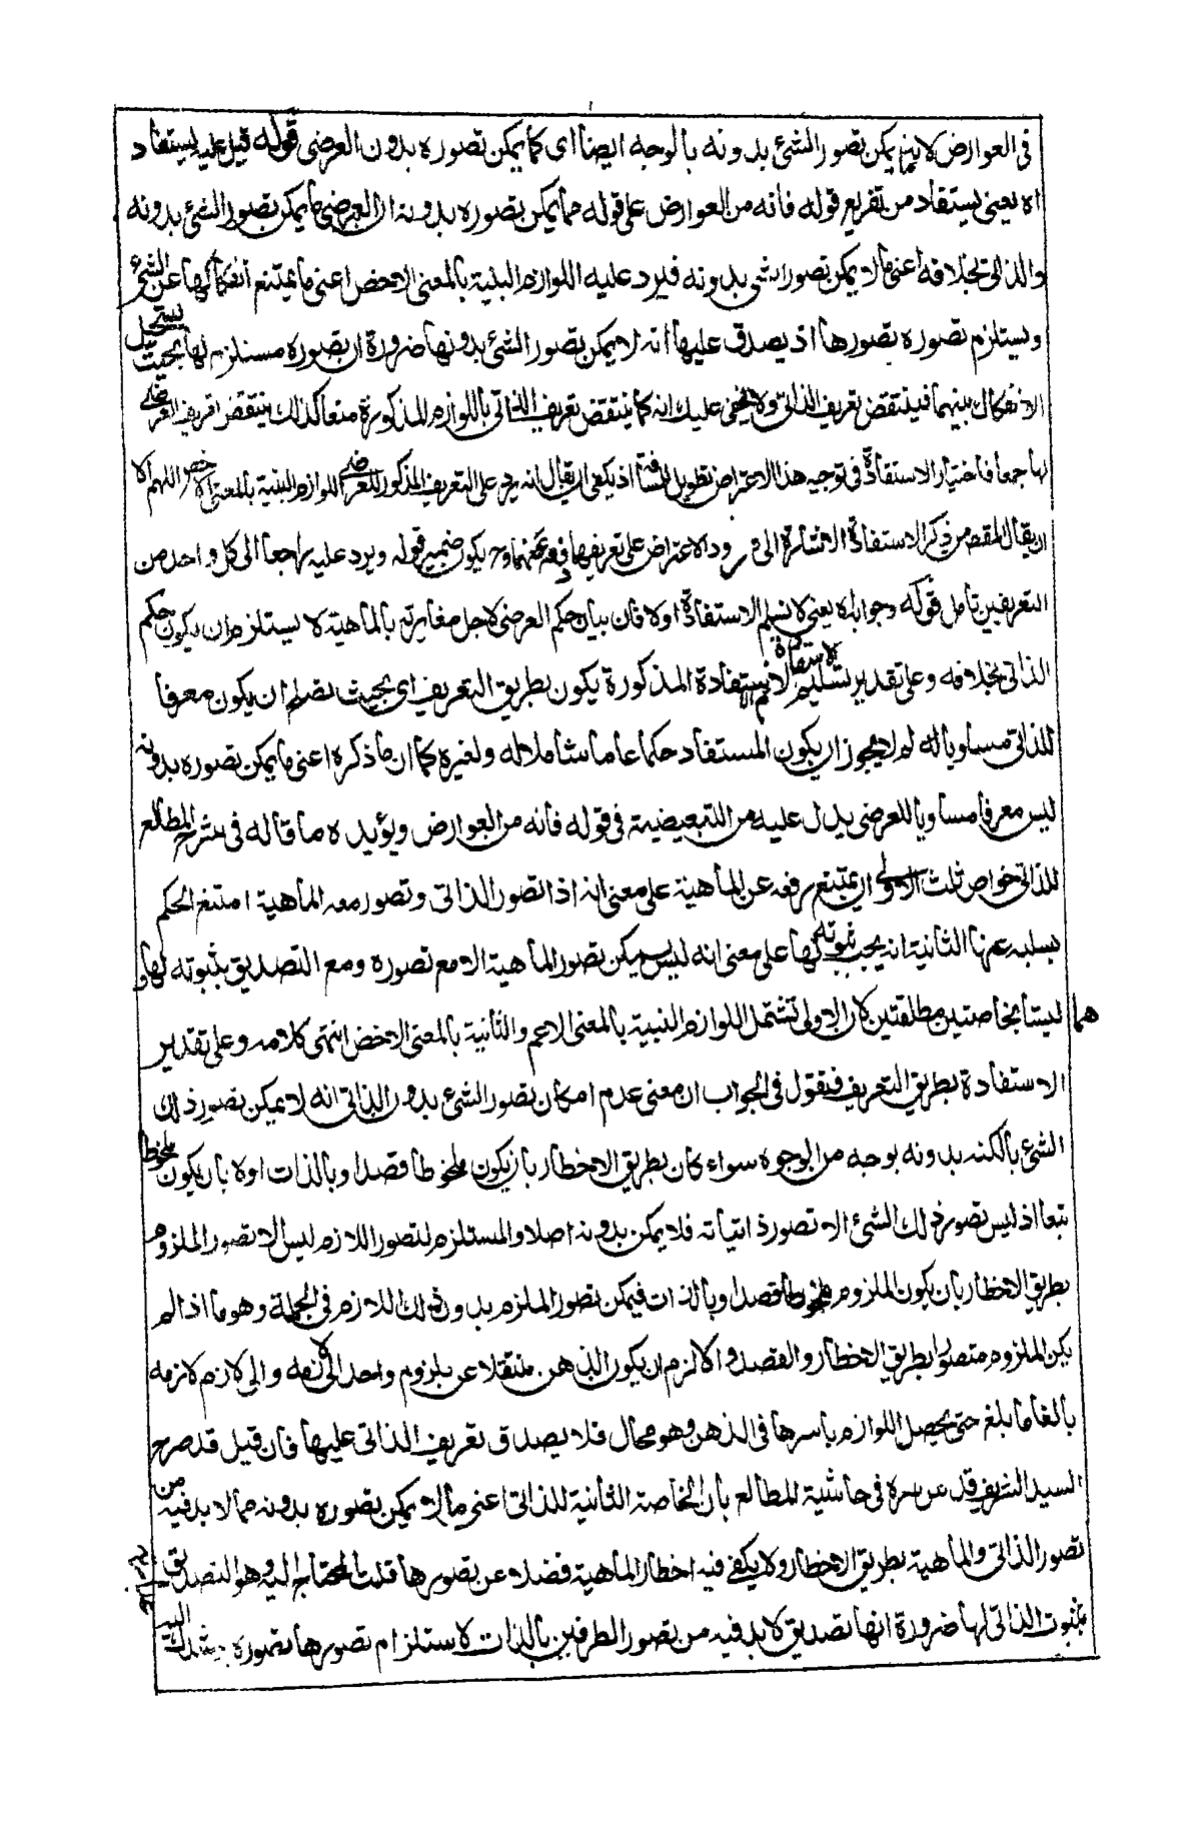 في العوارض لانه يمكن تصور الشئ بدونه بالوجه ايضا اى كما يمكن تصوره بدون العرضى قوله قيل عليه يستفاد
اه يعنى يستفاد من تفريع قوله فانه من العوارض على قوله مما يمكن تصوره بدونه ان العرضى ما يمكن تصور الشئ بدونه
والذاتى بخلافه اعنى ما لا يمكن تصور الشئ بدونه فيرد عليه اللوازم البينة بالمعنى الاخص اعنى ما يمتنع انفكاكها عن الشئ
ويستلزم تصوره تصورها اذ يصدق عليها انه لا يمكن تصور الشئ بدونها ضرورة ان تصوره مستلزم لها بحيث يستحيل
الانفكاك بينهما فينتقض تعريف الذاتى ولا يخفى عليك انه كما ينتقض تعريف الذاتى باللوازم المذكورة منعا كذلك ينتقض تعريف العرضى
بها جمعا فاختيار الاستفادة فى توجيه هذا الاعتراض تطويل المسافة اذ يكفى ان يقال انه يرد على التعريف المذكور للعرضى اللوازم البينة بالمعنى الاخص اللهم الا
ان يقال المقصد من ذكر الاستفادة الاشارة الى ورود الاعتراض على تعريفها وح يكون ضمير قوله ويرد عليه راجعا الى كل واحد من
التعريفين تأمل قوله وجوابه يعنى لا نسلم الاستفادة اولا فان بيان حكم العرضى لاجل مغايرته بالماهية لا يستلزم ان يكون حكم
الذاتى بخلافه وعلى تقدير تسليم الاستفادة لانم ان الاستفادة المذكورة يكون بطريق التعريف اى بحيث يصلح ان يكون معرفا
للذاتى مساويا له لم لا يجوز ان يكون المستفاد حكما عاما شاملا له ولغيره كما ان ما ذكره اعنى ما يمكن تصوره بدونه
ليس معرفا مساويا للعرضى يدل عليه من التبعيضية فى قوله فانه من العوارض ويؤيده ما قاله فى شرح المطالع
للذاتى خواص ثلث الاولى ان يمتنع رفعه عن الماهية على معنى انه اذا تصور الذاتى وتصور معه الماهية امتنع الحكم
بسلبه عنها الثانية انه يجب ثبوته لها على معنى انه ليس يمكن تصور الماهية الا مع تصوره ومع التصديق بثبوته لها و
هما ليستا بخاصتين مطلقتين لان الاولى تشتمل اللوازم البينة بالمعنى الاعم والثانية بالمعنى الاخص انتهى كلامه وعلى تقدير
الاستفادة بطريق التعريف فنقول فى الجواب ان معنى عدم امكان تصور الشئ بدون الذاتى انه لا يمكن تصور ذلك
الشئ بالكنه بدونه بوجه من الوجوه سواء كان بطريق الاخطار بان يكون ملحوظا قصدا وبالذات اولا بان يكون ملحوظا
تبعا اذ ليس تصور ذلك الشئ الا تصور ذاتياته فلا يمكن بدونه اصلا والمستلزم لتصور اللازم ليس الا تصور الملزوم
بطريق الاخطار بان يكون الملزوم ملحوظا قصدا وبالذات فيمكن تصور الملزوم بدون ذلك اللازم فى الجملة وهو ما اذا لم
يكن الملزوم متصورا بطريق الاخطار والقصد والا لزم ان يكون الذهن منتقلا عن ملزوم واحد الى لازمه والى لازم لازمه
بالغا ما بلغ حتى يحصل اللوازم باسرها فى الذهن وهو محال فلا يصدق تعريف الذاتى عليها فان قيل قد صرح
السيد الشريف قدس سره فى حاشية المطالع بان الخاصة الثانية للذاتى اعنى ما لا يمكن تصوره بدونه مما لا بد فيه من
تصور الذاتى والماهية بطريق الاخطار ولا يكفى فيه اخطار الماهية فضلا عن تصورها قلت المحتاج اليه هو التصديق
بثبوت الذاتى لها ضرورة انها تصديق لا بد فيه من تصور الطرفين بالذات لا استلزام تصورها تصوره